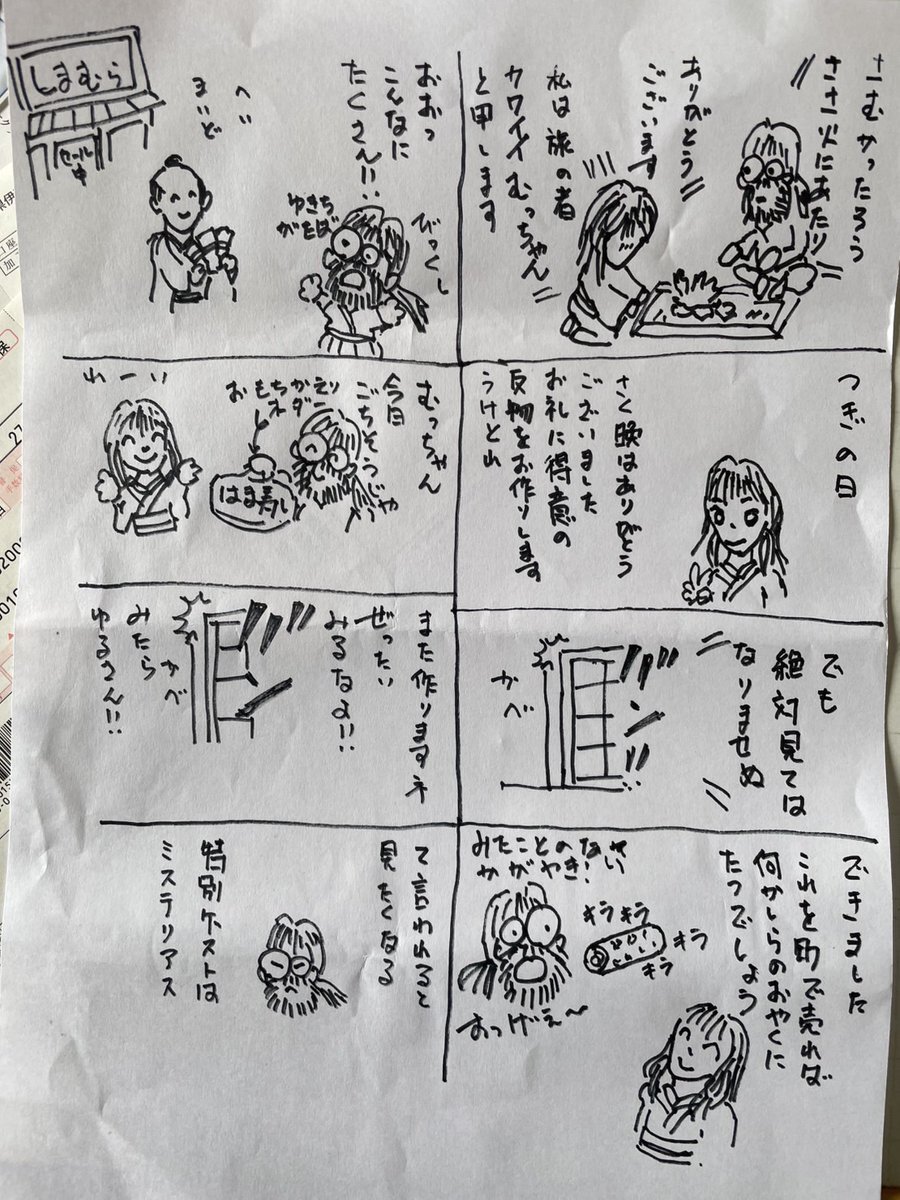 さむかったろう
ささ火にあたり
ありがとう
ございます
私は旅の者
カワイイむっちゃん
と申します
つぎの日
さく晩はありがとう
ございました
お礼に得意の
反物をお作りします
うけとれ
でも
絶対見ては
なりませぬ
かべ
できました
これを町で売れば
何かしらのおやくに
たつでしょう
みたことのない
かがやき!
キラキラ
キラ
キラ
おっげえ〜
おおっ
こんなに
たくさん!!
びっくし
ゆきち
がたば
へい
まいど
しまむら
セール
中
むっちゃん
今日
ごちそうじゃ
おもちかえり
オダー
はま寿し
わーい
また作りますネ
ぜったい
みるなよ!!
みたら
ゆるさん!!
かべ
て言われると
見たくなる
特別ゲストは
ミステリアス